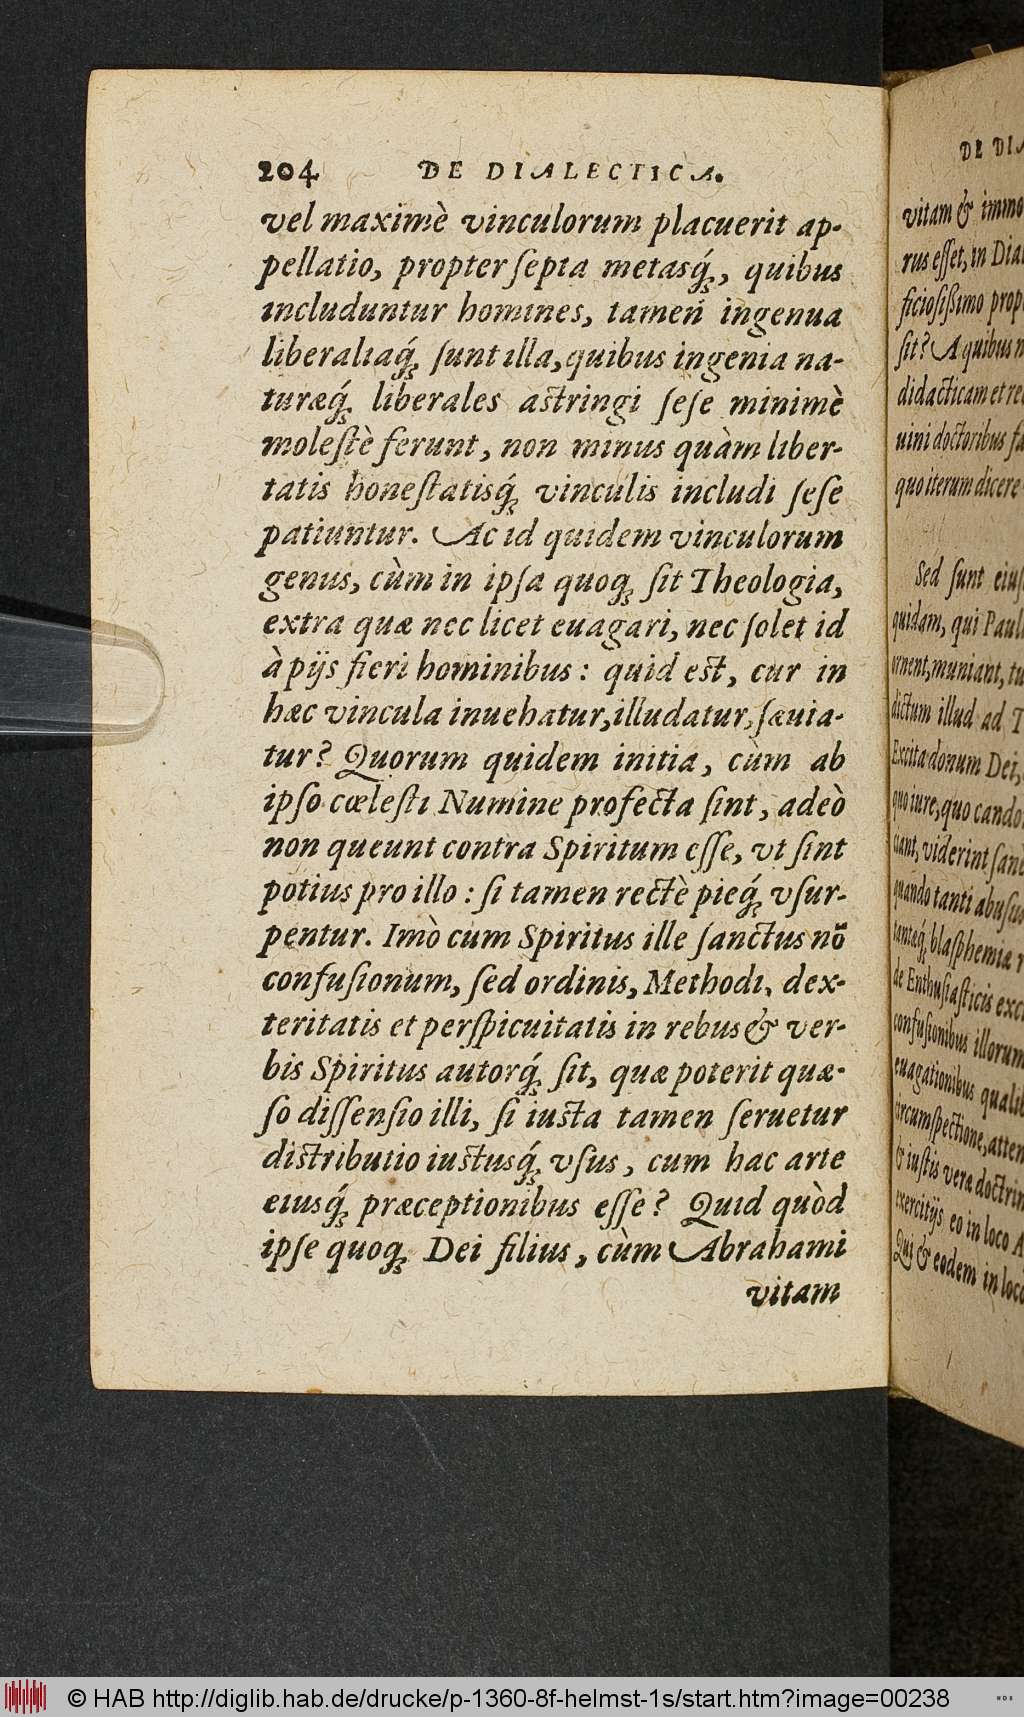 204 DE DIALECTICA.
vel maximè vinculorum placuerit ap-
pellatio, propter ſepta metasq́;, quibus
includuntur homines, tamen ingenua
liberaliaq́; ſunt illa, quibus ingenia na-
turæq́; liberales astringi ſeſe minimè
moleſtè ferunt, non minus quàm liber-
tatis honeſtatisq́; vinculis includi ſeſe
patiuntur. Ac id quidem vinculorum
genus, cùm in ipſa quoq; ſit Theologia,
extra quæ nec licet euagari, nec ſolet id
à pijs fieri hominibus: quid est, cur in
hæc vincula inuehatur, illudatur, ſæuia-
tur? Quorum quidem initia, cùm ab
ipſo cœleſti Numine profecta ſint, adeò
non queunt contra Spiritum eſſe, vt ſint
potius pro illo: ſi tamen rectè pieq́; vſur-
pentur. Imò cum Spiritus ille ſanctus nō
confuſionum, ſed ordinis, Methodi, dex-
teritatis et perſpicuitatis in rebus & ver-
bis Spiritus autorq́; ſit, quæ poterit quæ-
ſo diſſenſio illi, ſi iusta tamen ſeruetur
distributio iustusq́; vſus, cum hac arte
eiusq́; præceptionibus eſſe? Quid quòd
ipſe quoq; Dei filius, cùm Abrahami
vitam
DE DIA
vitam & immo
rus eſſet, in Dia
ficioſißimo prop
ſit? A quibus n
didacticam et re
uini doctoribus fa
quo iterum dicere
Sed ſunt eiuſ
quidam, qui Paul
ornent, muniant, tu
dictum illud ad T
Excita donum Dei,
quo iure, quo cando
ciant, viderint ſanè
quando tanti abuſus
tantæq́; blaſphemiæ
de Enthuſiaſticis exc
confuſionibus illorum
euagationibus qualib
circumſpectione, atten
& iuſtis veræ doctrin
exercitijs eo in loco A
Qui & eodem in loco
© HAB http://diglib.hab.de/drucke/p-1360-8f-helmst-1s/start.htm?image=00238